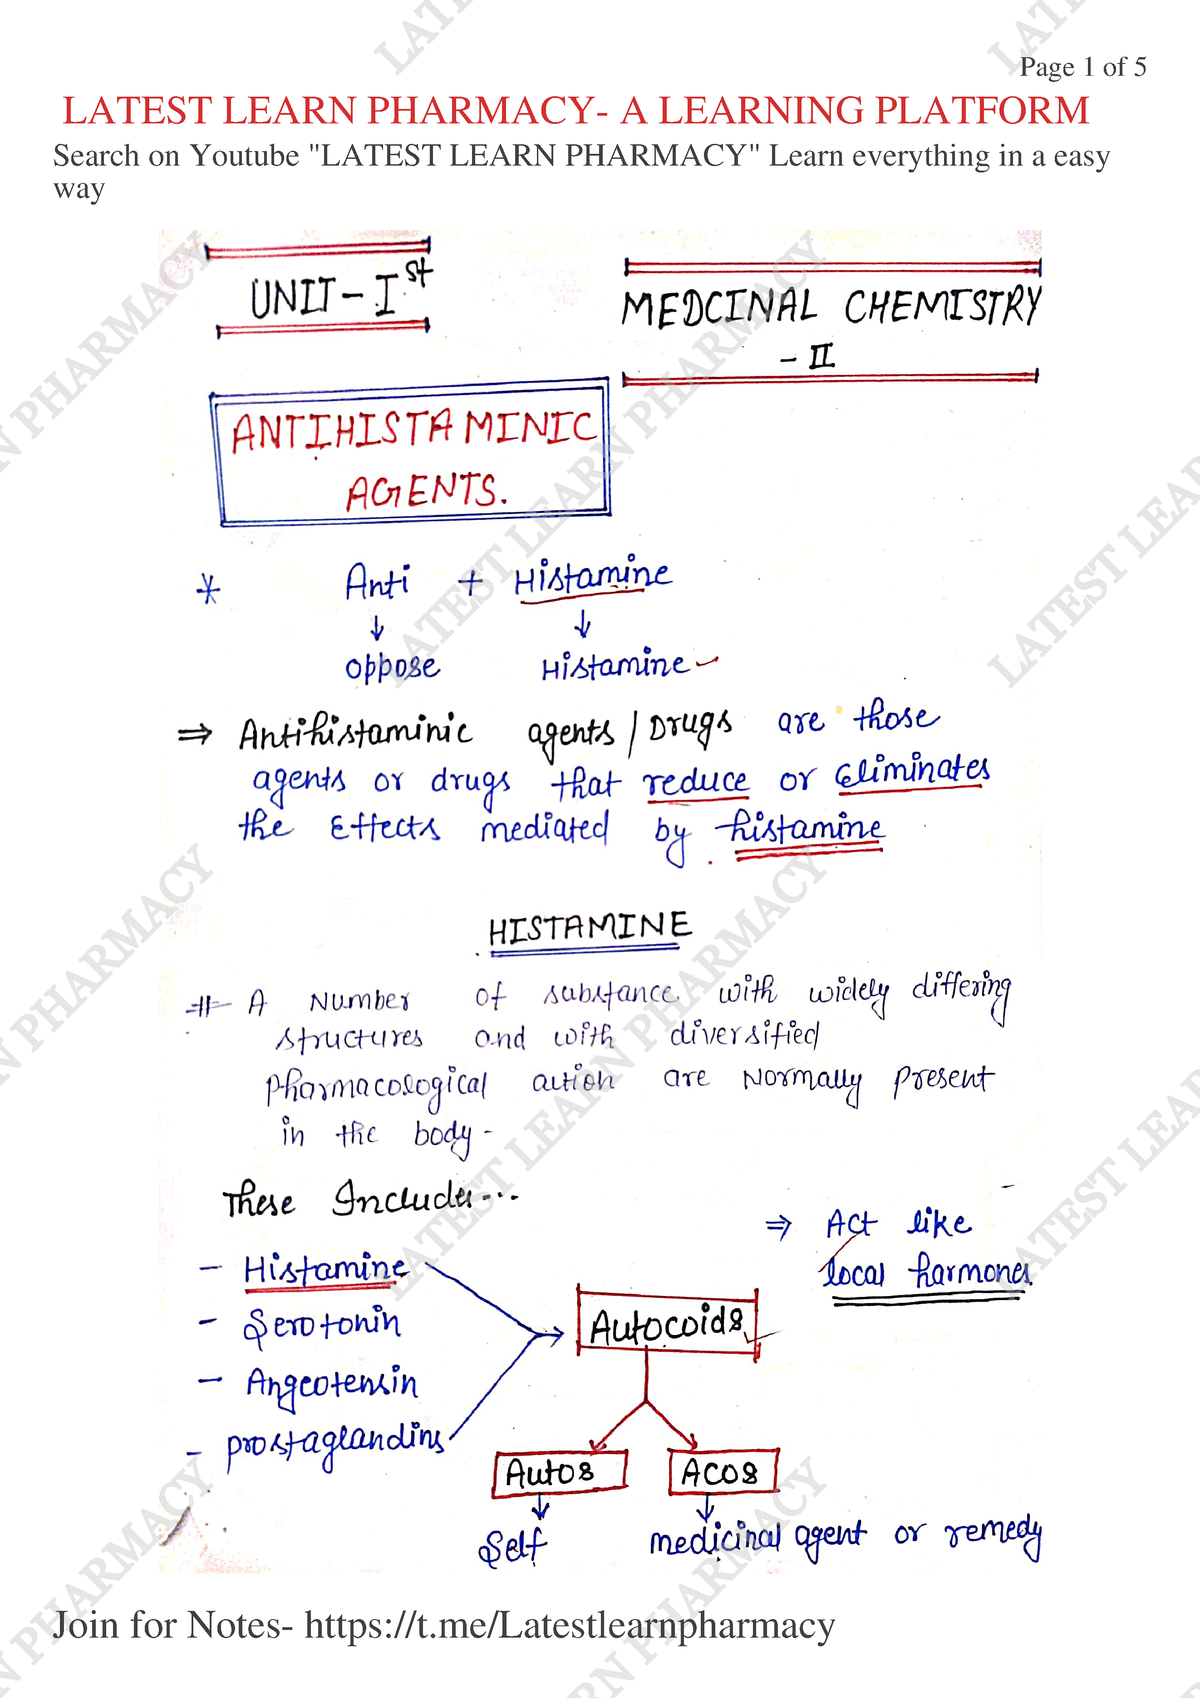 Page 1 of 5
LATEST LEARN PHARMACY- A LEARNING PLATFORM
Search on Youtube "LATEST LEARN PHARMACY" Learn everything in a easy
way
UNIT-Ist
MEDCINAL CHEMISTRY
- II
ANTIHISTAMINIC
AGENTS.
* Anti + Histamine
↓ ↓
oppose Histamine
⇒ Antihistaminic agents/Drugs are those
agents or drugs that reduce or Eliminates
the Effects mediated by histamine
HISTAMINE
# A Number of substance with widely differing
structures and with diversified
pharmacological action are Normally present
in the body-
These Includes...
⇒ Act like
local harmones
- Histamine
- Serotonin
- Angeotensin
- prostaglandins
Autocoids
Autos
Acos
Self
medicinal agent or remedy
Join for Notes- https://t.me/Latestlearnpharmacy
LATEST LEARN PHARMACY